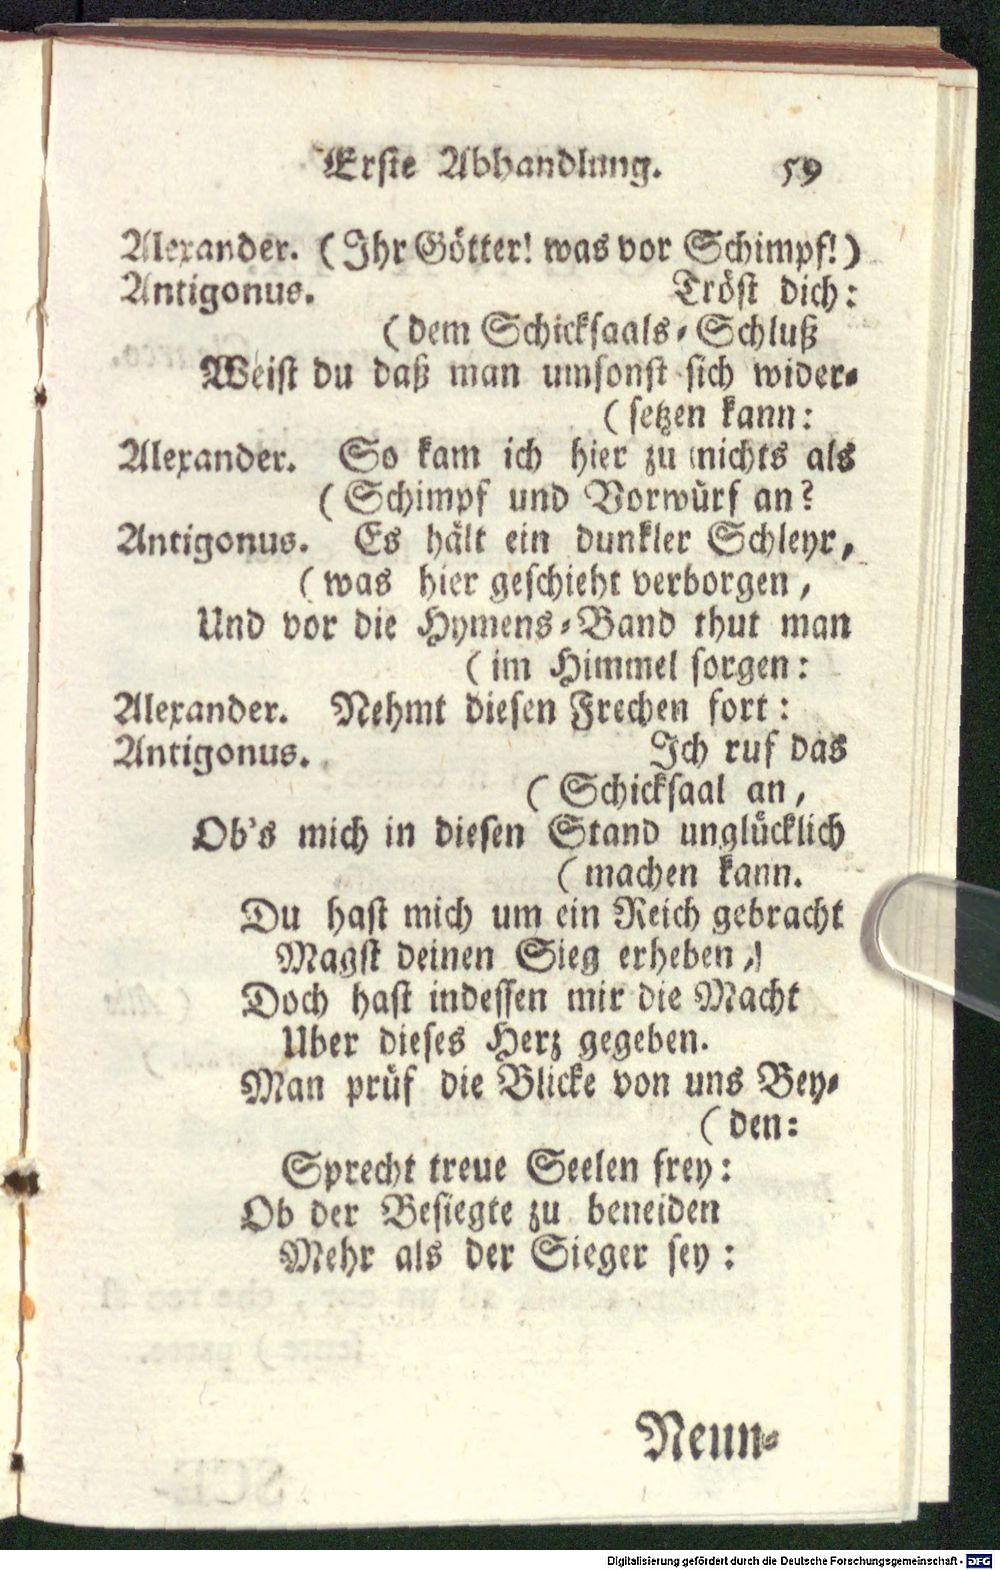 Erste Abhandlung. 59
Alexander. (Ihr Götter! was vor Schimpf!)
Antigonus. Tröst dich:
(dem Schicksaals-Schluß
Weist du daß man umsonst sich wider-
(setzen kann:
Alexander. So kam ich hier zu nichts als
(Schimpf und Vorwürf an?
Antigonus. Es hält ein dunkler Schleyr,
(was hier geschieht verborgen,
Und vor die Hymens-Band thut man
(im Himmel sorgen:
Alexander. Nehmt diesen Frechen fort:
Antigonus. Ich ruf das
(Schicksaal an,
Ob's mich in diesen Stand unglücklich
(machen kann.
Du hast mich um ein Reich gebracht
Magst deinen Sieg erheben,
Doch hast indessen mir die Macht
Uber dieses Herz gegeben.
Man prüf die Blicke von uns Bey-
(den:
Sprecht treue Seelen frey:
Ob der Besiegte zu beneiden
Mehr als der Sieger sey:
Neun-
Digitalisierung gefördert durch die Deutsche Forschungsgemeinschaft - DFG